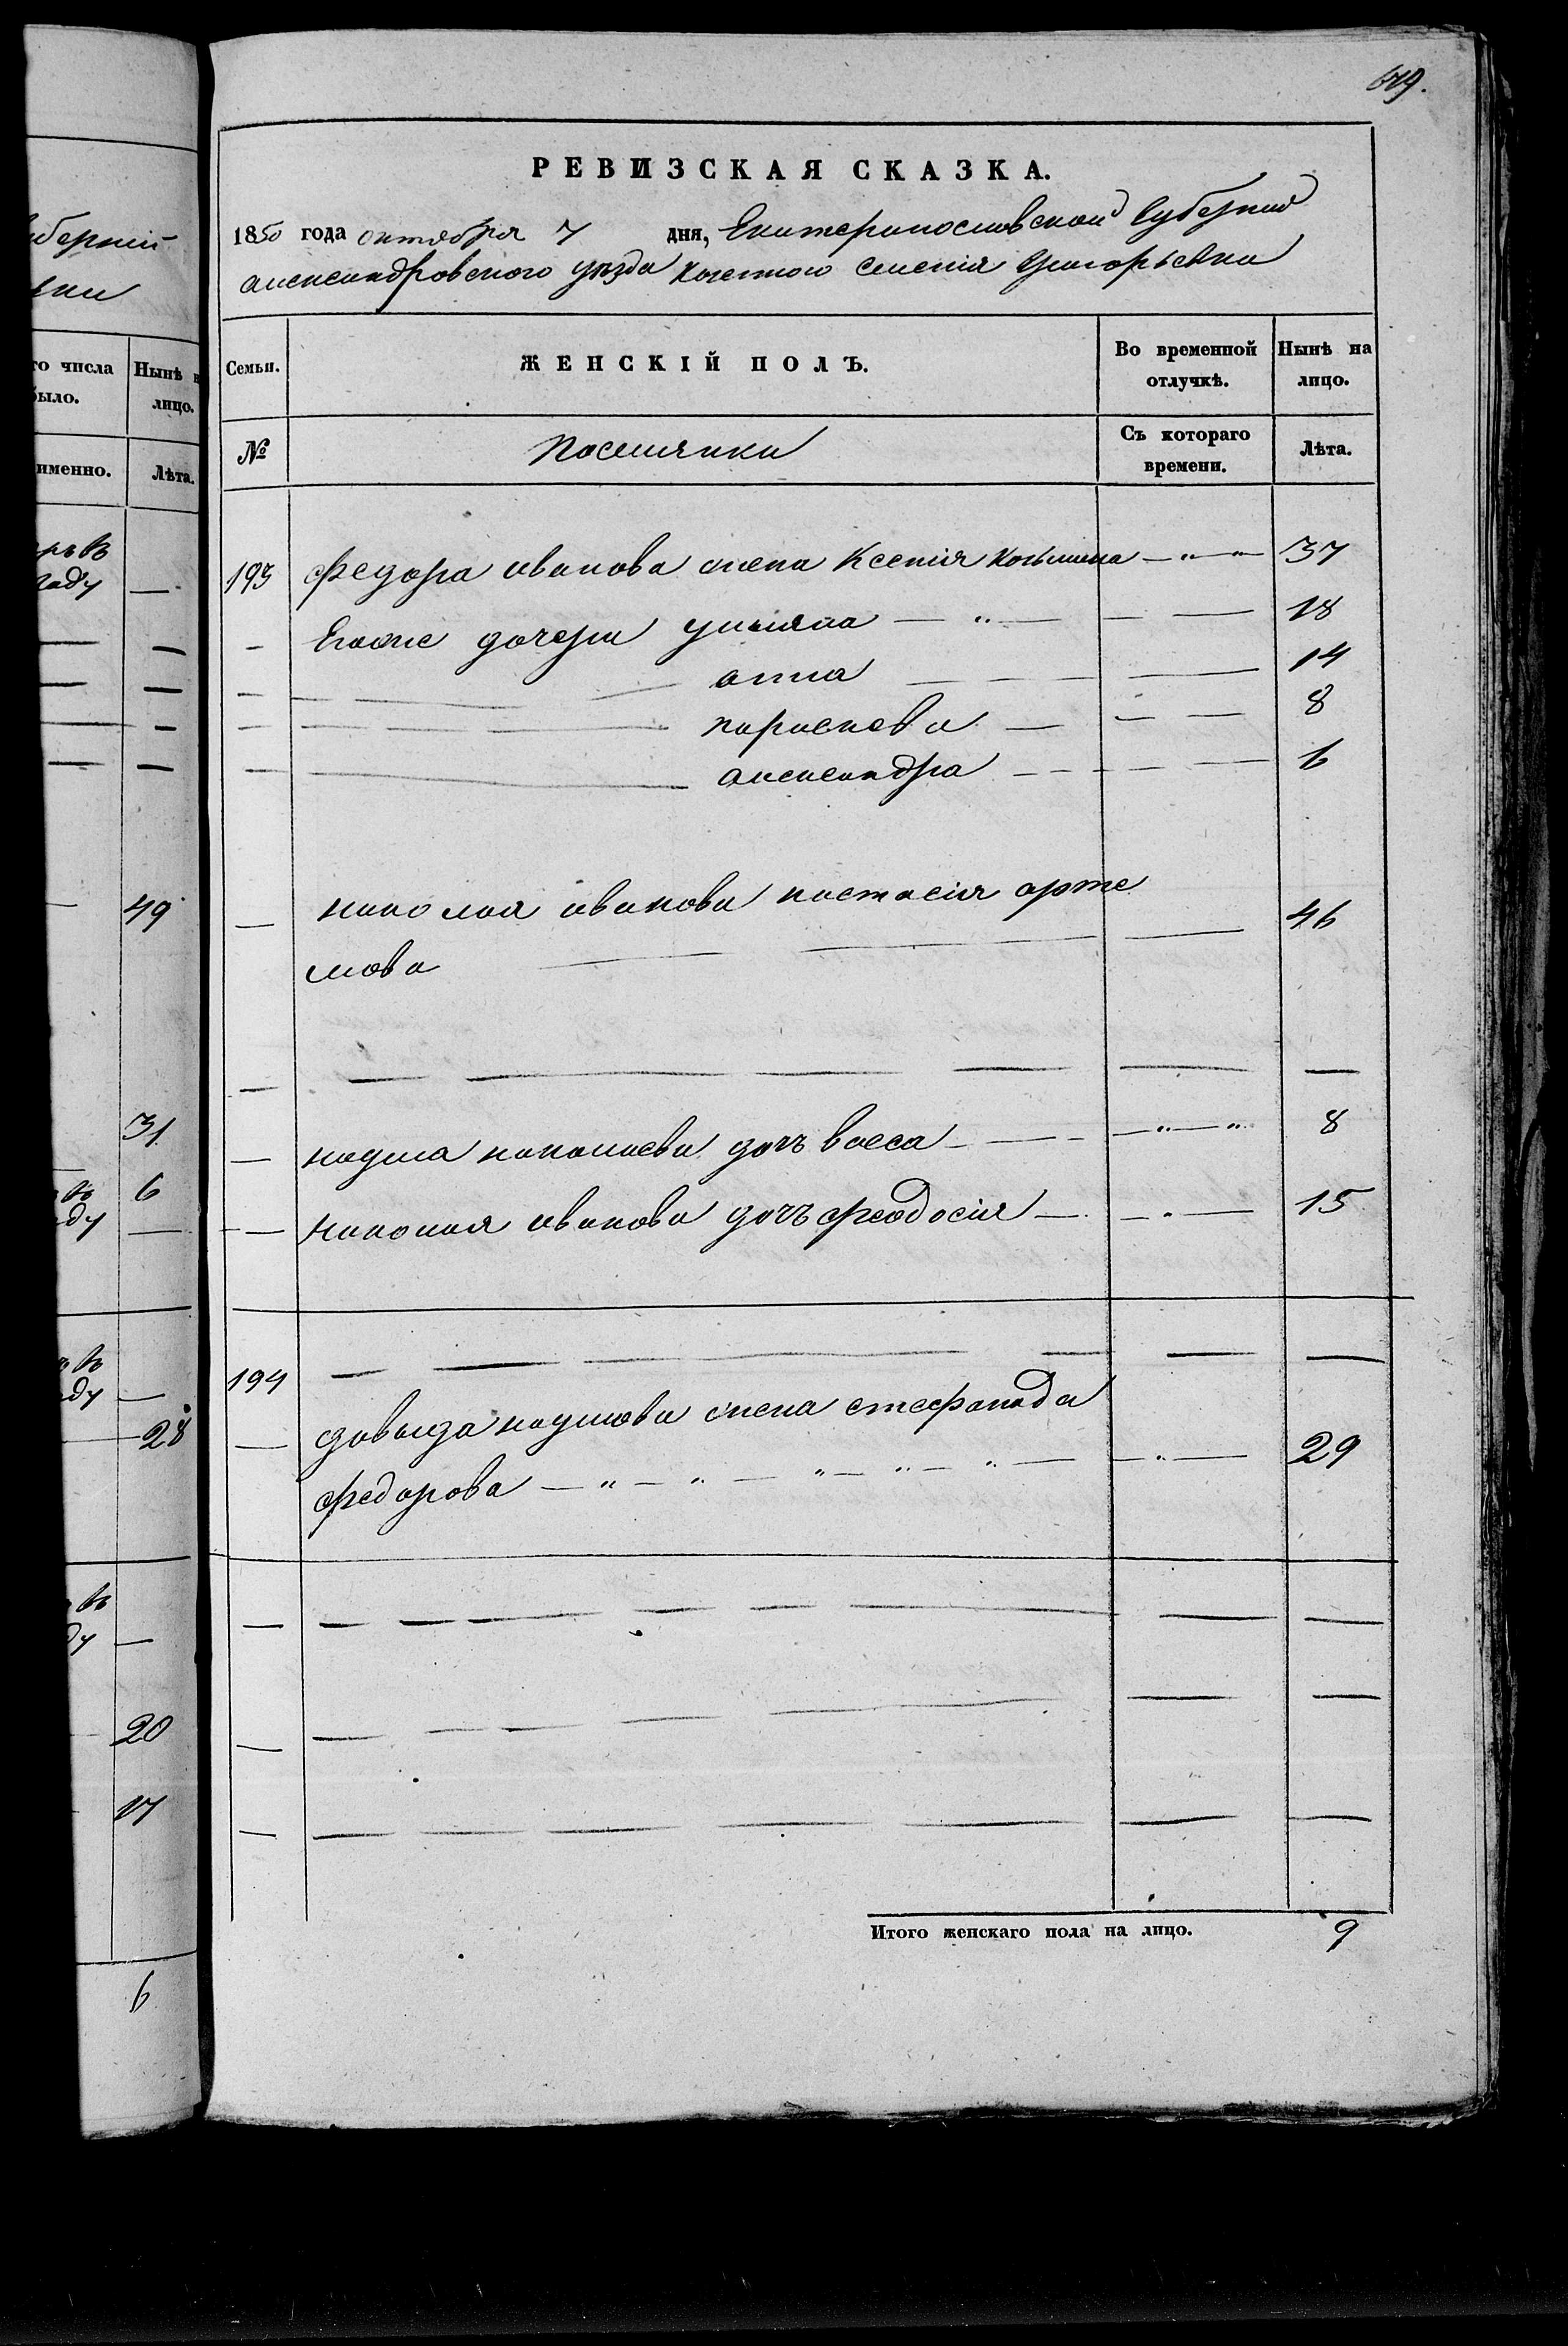 679.
РЕВИЗСКАЯ СКАЗКА.
1850 года октября 7 дня, Екатеринославской Губернии
александровского уезда казенного селенія Григорьевки
Семьи. ЖЕНСКІЙ ПОЛЪ. Во временной отлучкѣ. Нынѣ на лицо.
№ Поселянки Съ котораго времени. Лѣта.
193 Федора иванова жена Ксенія — 37
Егоже дочери ульяна — 18
анна — 14
параскева — 8
александра — 6
николая иванова настасія арте
мова — 46
наума николаева дочь васса — 8
николая иванова дочь феодосія — 15
194
давыда наумова жена стефанида
федорова — 29
Итого женскаго пола на лицо. 9
губерній
вки
го числа было. Нынѣ на лицо.
именно. Лѣта.
году
49
31
6
28
20
17
6